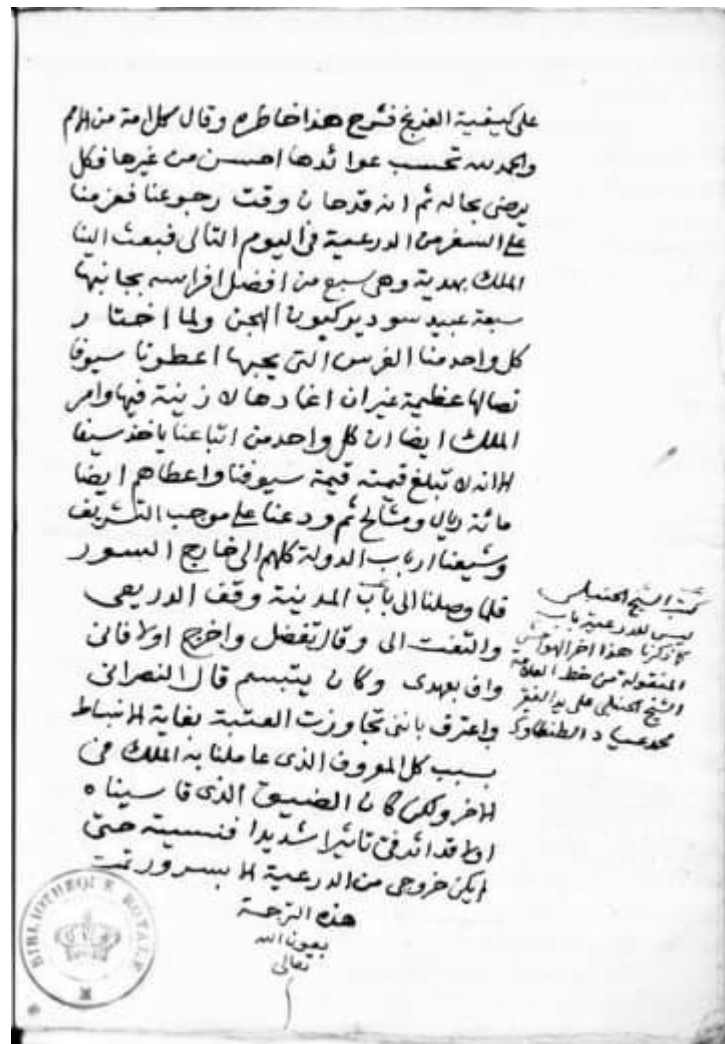 على كيفية الفرنج فشرح هذا خاطره وقال كل امة من الامم
والحمد لله تحسب عوائدها احسن من غيرها فكل
يرضى بحاله ثم انه قد حان وقت رجوعنا فعزمنا
على السفر من الدرعية في اليوم التالى فبعث الينا
الملك بهدية وهى سبع من افضل افراسه بجانبها
سبعة عبيد سود يركبون الهجن ولما اختار
كل واحد منا الفرس التى يحبها اعطونا سيوفا
نصالها عظيمة غير ان اغمادها لا زينة فيها وامر
الملك ايضا ان كل واحد من اتباعنا ياخذ سيفا
الا انه لا تبلغ قيمته قيمة سيوفنا واعطاهم ايضا
مائة ريال ومشالح ثم ودعنا على موجب التشريف
وشيعنا ارباب الدولة كلهم الى خارج السور
فلما وصلنا الى باب المدينة وقف الدريعى
والتفت الى وقال تفضل واخرج اولا فانى
واف بعهدى وكان يتبسم قال النصرانى
واعترف باننى تجاوزت العتبة بغاية الانبساط
بسبب كل المعروف الذى عاملنا به الملك فى
الاخر ولكن كان الضيق الذى قاسيناه
اولا قد اثر فى تاثيرا شديدا فنسيته حتى
لم يكن خروجى من الدرعية الا بسرور تمت
هذه الترجمة
بعون الله
تعالى
كتب الشيخ الحنبلى
ليس للدرعية باب
كما ذكرنا هذا اخر الهوامش
المنقولة من خط العلامة
الشيخ الحنبلى على يد الفقير
محمد عياد الطنطاوى
BIBLIOTHEQUE ROYALE